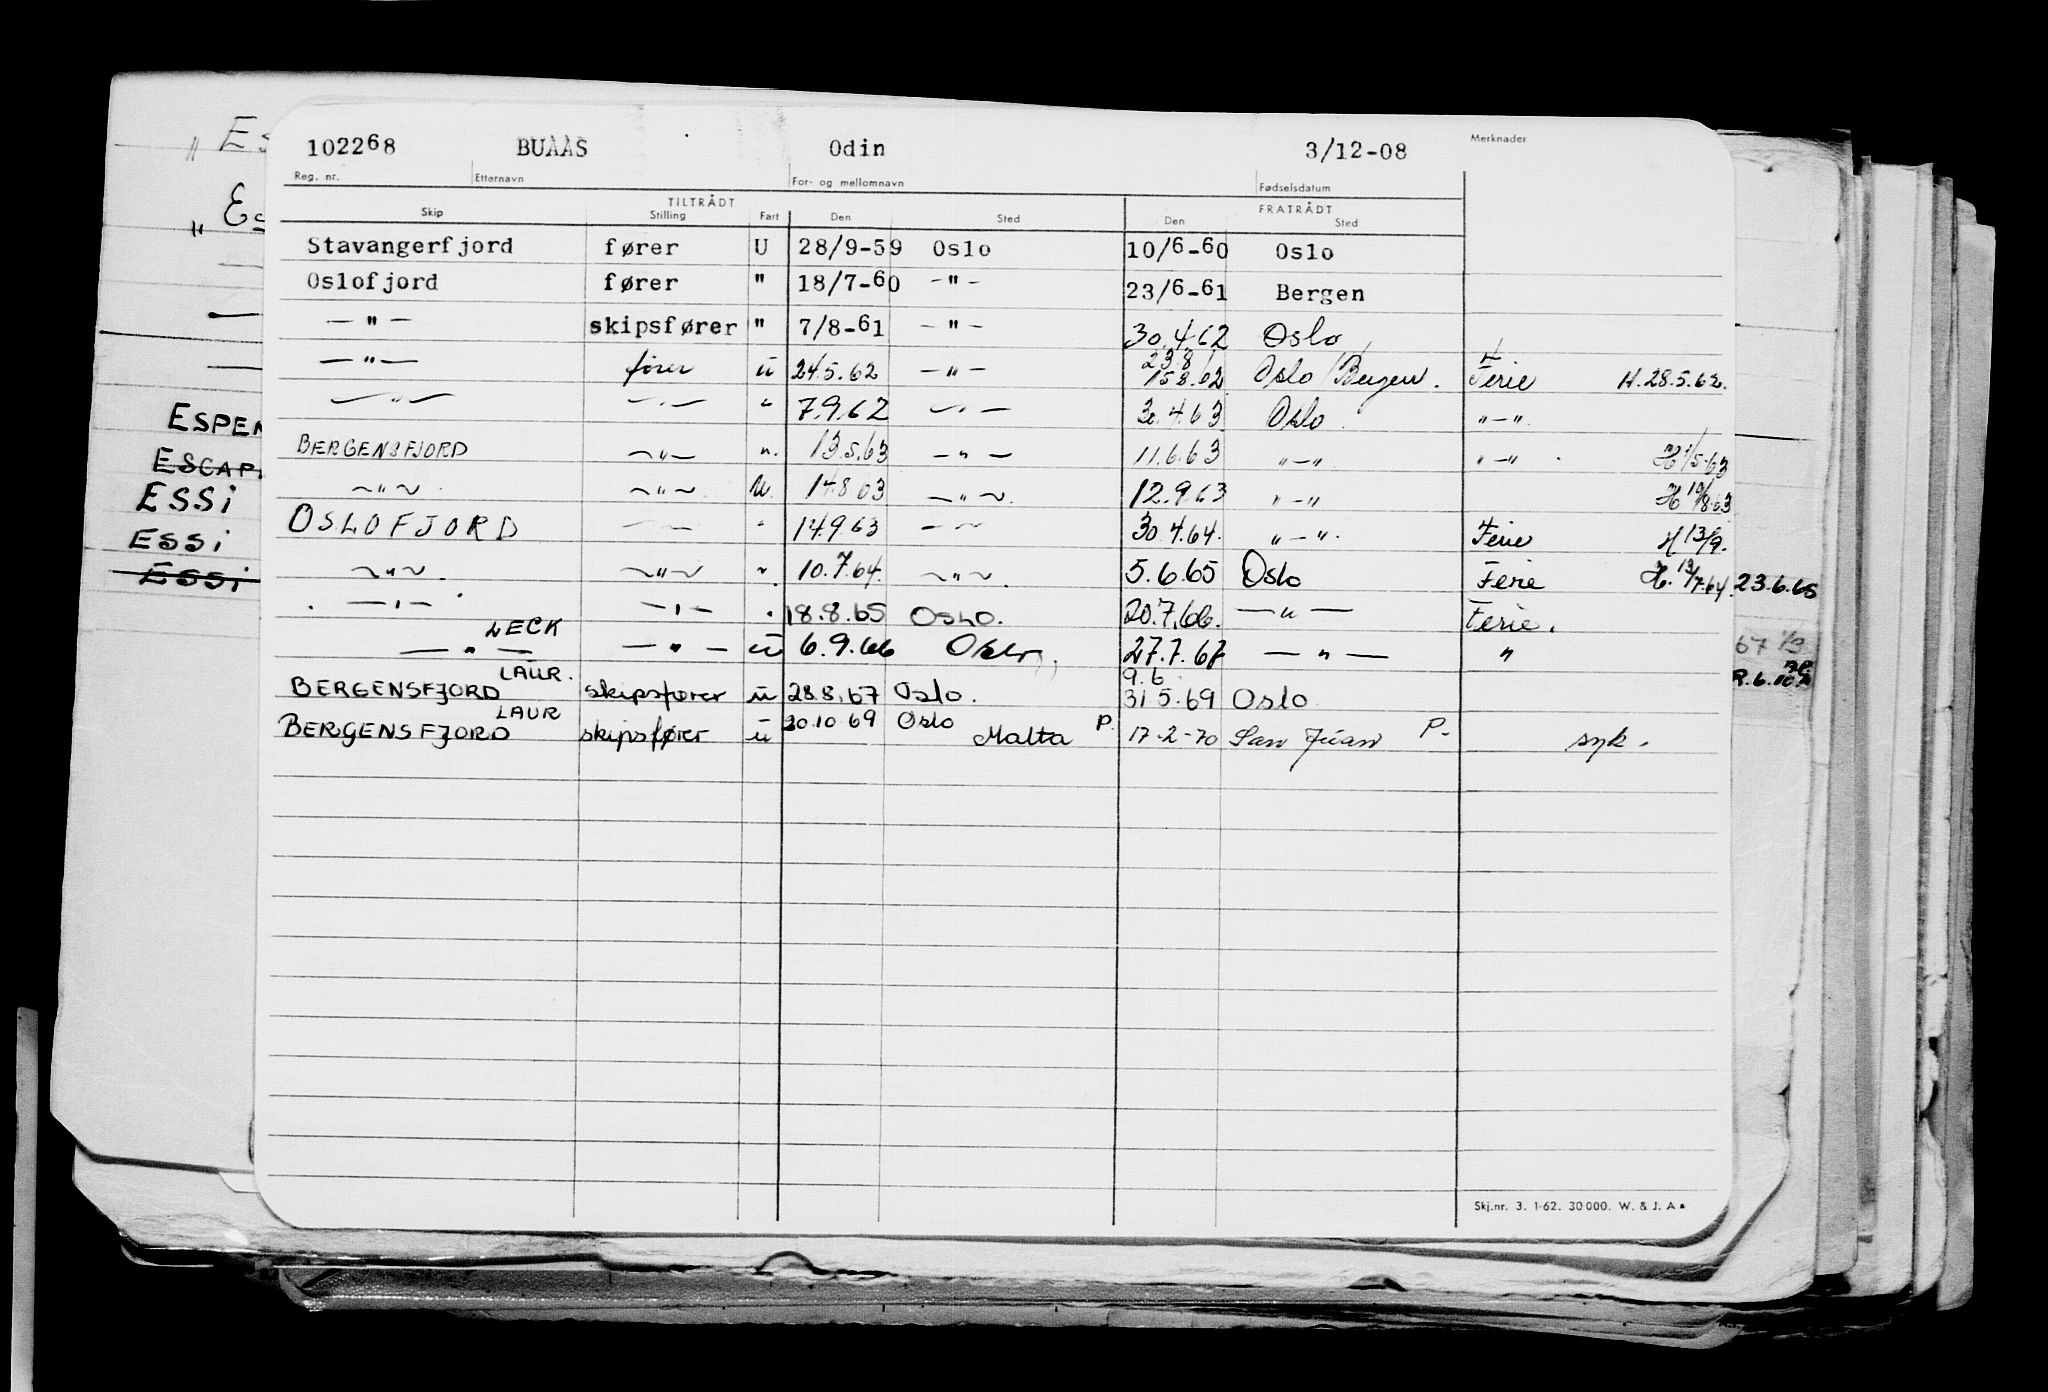 102268 BUAAS Odin 3/12-08 Merknader
Reg. nr. Etternavn For- og mellomnavn Fødselsdatum
TILTRÅDT FRATRÅDT
Skip Stilling Fart Den Sted Den Sted
Stavangerfjord fører U 28/9-59 Oslo 10/6-60 Oslo
Oslofjord fører " 18/7-60 -"- 23/6-61 Bergen
-"- skipsfører " 7/8-61 -"- 30.4.62 Oslo
-"- fører ū 24.5.62 -"- 23.8/15.8.62 Oslo/Bergen. Ferie H.28.5.62.
-"- -"- " 7.9.62 -"- 30.4.63 Oslo "-"
BERGENSFJORD -"- ". 13.5.63 -"- 11.6.63 "-" "-" H 11/5-63
-"- -"- U. 14.8.63 -"- 12.9.63 "-" H 10/8.63
OSLOFJORD -"- " 14.9.63 -"- 30.4.64. "-". Ferie H 13/9.
-"- -"- " 10.7.64. -"- 5.6.65 Oslo Ferie H. 13/7.64. 23.6.65
-"- -"- " 18.8.65 OSLO. 20.7.66. -"- Ferie.
LECK
-"- -"- ū 6.9.66 Oslo 27.7.67 -"- "
LAUR.
BERGENSFJORD skipsfører ū 28.8.67 Oslo. 9.6 31.5.69 Oslo
LAUR
BERGENSFJORD skipsfører ū 20.10.69 Oslo Malta P. 17-2-70 San Juan P- syk.
Skj.nr. 3. 1-62. 30000. W. & J. A
" Es
" Es
ESPEN
ESCAP
ESSi
ESSi
ESSi
67